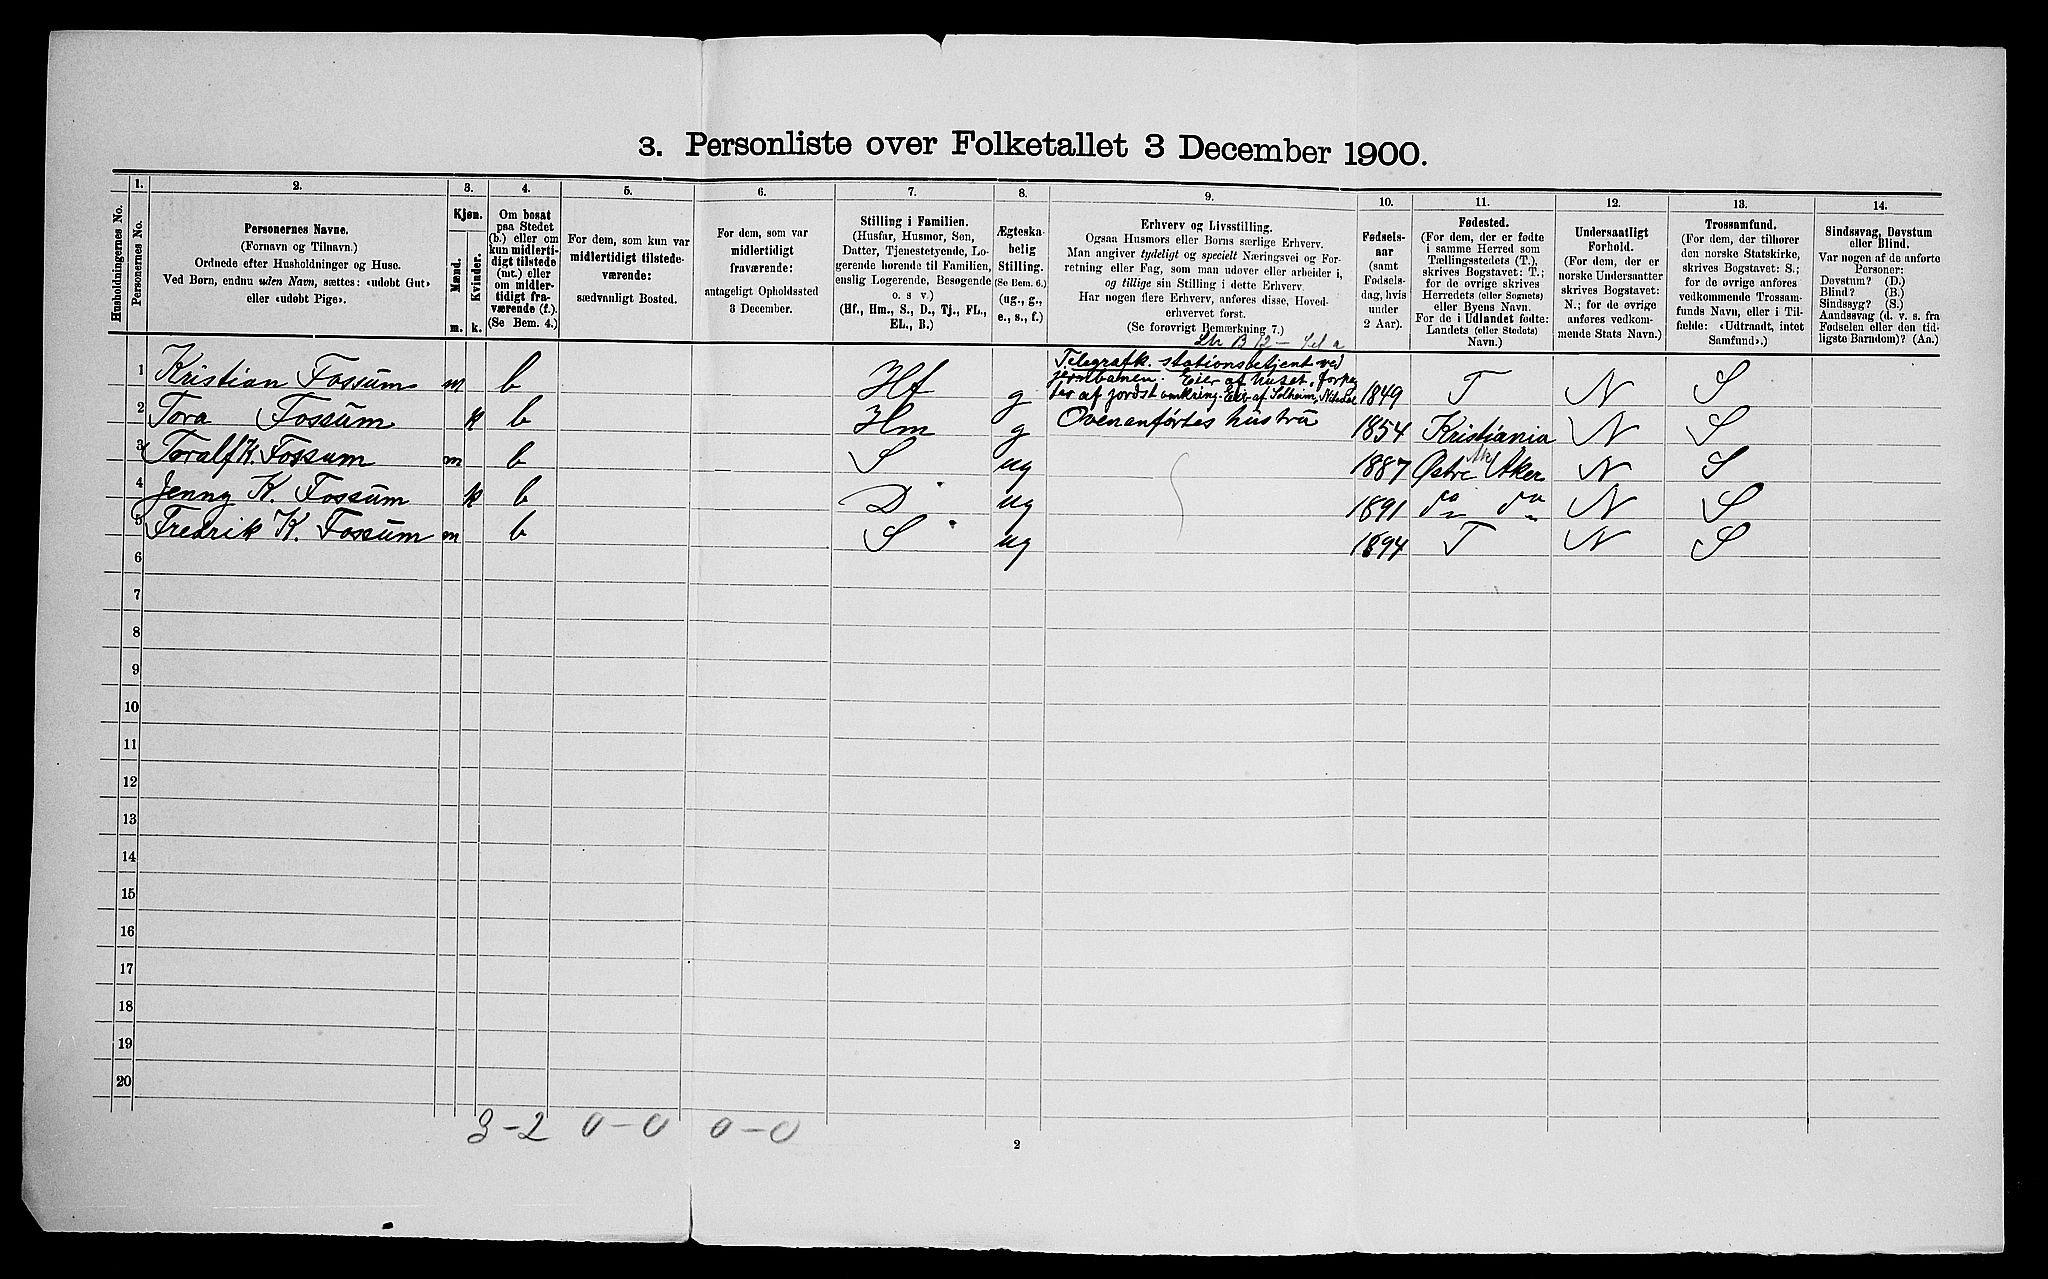 3. Personliste over Folketallet 3 December 1900.
Husholdningernes No.
1.
Personernes No.
2.
Personernes Navne.
(Fornavn og Tilnavn.)
Ordnede efter Husholdninger og Huse.
Ved Børn, endnu uden Navn, sættes: «udøbt Gut»
eller «udøbt Pige».
3.
Kjøn.
Mænd.
Kvinder.
m.
k.
4.
Om bosat
paa Stedet
(b.) eller om
kun midlerti-
digt tilstede
(mt.) eller
om midler-
tidigt fra-
værende (f.).
(Se Bem. 4.)
5.
For dem, som kun var
midlertidigt tilstede-
værende:
sædvanligt Bosted.
6.
For dem, som var
midlertidigt
fraværende:
antageligt Opholdssted
3 December.
7.
Stilling i Familien.
(Husfar, Husmor, Søn,
Datter, Tjenestetyende, Lo-
gerende hørende til Familien,
enslig Logerende, Besøgende
o. s v.)
(Hf., Hm., S., D., Tj., FL.,
EL., B.)
8.
Ægteska-
belig
Stilling.
(Se Bem. 6.)
(ug., g.,
e., s., f.)
9.
Erhverv og Livsstilling.
Ogsaa Husmors eller Børns særlige Erhverv.
Man angiver tydeligt og specielt Næringsvei og For-
retning eller Fag, som man udøver eller arbeider i,
og tillige sin Stilling i dette Erhverv.
Har nogen flere Erhverv, anføres disse, Hoved-
erhvervet først.
(Se forøvrigt Bemærkning 7.)
10.
Fødsels-
aar
(samt
Fødsels-
dag, hvis
under
2 Aar).
11.
Fødested.
(For dem, der er fødte
i samme Herred som
Tællingsstedets (T.),
skrives Bogstavet: T.;
for de øvrige skrives
Herredets (eller Sognets)
eller Byens Navn.
For de i Udlandet fødte:
Landets (eller Stedets)
Navn.)
12.
Undersaatligt
Forhold.
(For dem, der er
norske Undersaatter
skrives Bogstavet:
N.; for de øvrige
anføres vedkom-
mende Stats Navn.)
13.
Trossamfund.
(For dem, der tilhører
den norske Statskirke,
skrives Bogstavet: S.;
for de øvrige anføres
vedkommende Trossam-
funds Navn, eller i Til-
fælde: «Udtraadt, intet
Samfund».)
14.
Sindssvag, Døvstum
eller Blind.
Var nogen af de anførte
Personer:
Døvstum? (D.)
Blind? (B.)
Sindssyg? (S.)
Aandssvag (d. v. s. fra
Fødselen eller den tid-
ligste Barndom)? (Aa.)
B 12
1 Kristian Fossum m b Hf g Telegrafk. stationsbetjent ved
jernbanen. Eier af huset,
af jordst omkring. Eier af Solheim, 1849 T N S
2 Tora Fossum k b Hm g Ovenanførtes hustru 1854 Kristiania N S
3 Toralf K. Fossum m b S ug 1887 Østre Aker N S
4 Jenny K. Fossum k b D ug 1891 do do N S
5 Fredrik K. Fossum m b S ug 1894 T N S
6
7
8
9
10
11
12
13
14
15
16
17
18
19
20
3-2 0-0 0-0
2